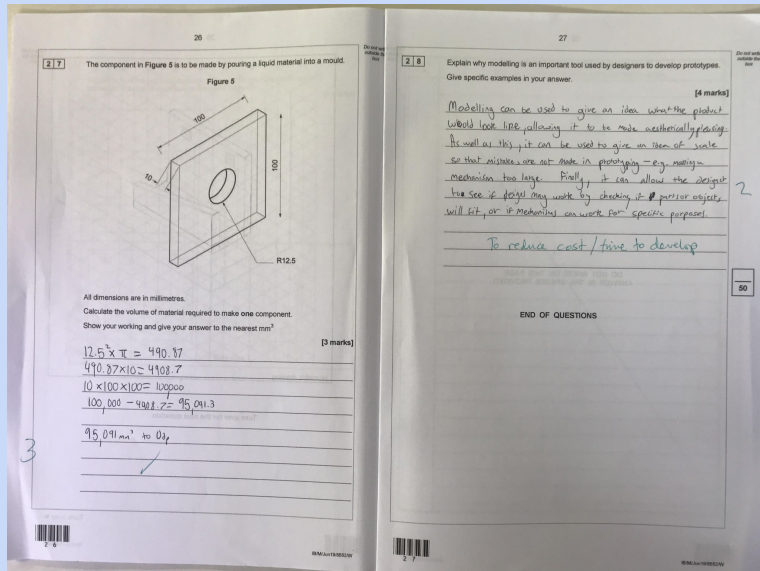 26
Do not write
outside the
box
2 7 The component in Figure 5 is to be made by pouring a liquid material into a mould.
Figure 5
100
10
100
R12.5
All dimensions are in millimetres.
Calculate the volume of material required to make one component.
Show your working and give your answer to the nearest mm³
[3 marks]
12.5² x π = 490.87
490.87x10= 4908.7
10 x100x100= 100,000
100,000 - 4908.7= 95,091.3
95,091mm³ to 0dp
3
2 6
IB/M/Jun19/8552/W
27
Do not write
outside the
box
2 8 Explain why modelling is an important tool used by designers to develop prototypes.
Give specific examples in your answer.
[4 marks]
Modelling can be used to give an idea what the product
would look like, allowing it to be made aesthetically pleasing.
As well as this, it can be used to give an idea of scale
so that mistakes are not made in prototyping - e.g. making a
mechanism too large. Finally, it can allow the designer
to see if design may work by checking if parts or objects
will fit, or if mechanisms can work for specific purposes.
2
To reduce cost / time to develop
50
END OF QUESTIONS
2 7
IB/M/Jun19/8552/W